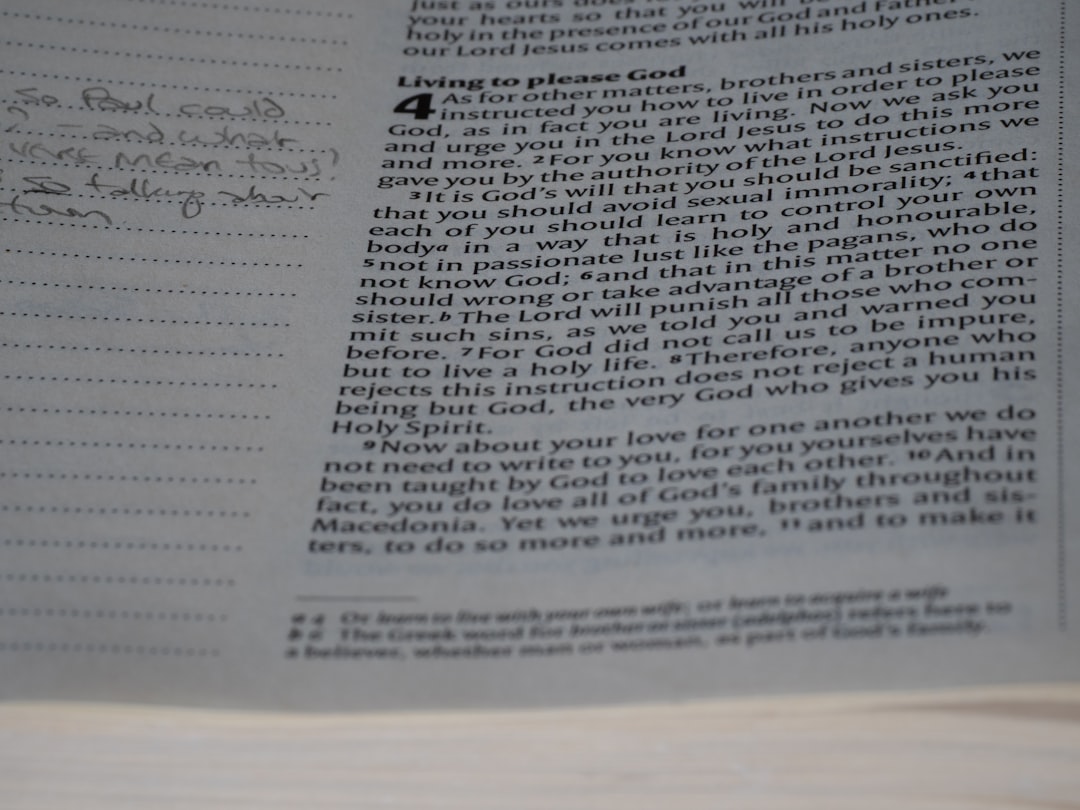 so Paul could
? - and what
verse mean to us?
so talking about
them
just as ours does
your hearts so that you will be
holy in the presence of our God and Father
our Lord Jesus comes with all his holy ones.
Living to please God
4 As for other matters, brothers and sisters, we
instructed you how to live in order to please
God, as in fact you are living. Now we ask you
and urge you in the Lord Jesus to do this more
and more. 2 For you know what instructions we
gave you by the authority of the Lord Jesus.
3 It is God's will that you should be sanctified:
that you should avoid sexual immorality; 4 that
each of you should learn to control your own
body a in a way that is holy and honourable,
5 not in passionate lust like the pagans, who do
not know God; 6 and that in this matter no one
should wrong or take advantage of a brother or
sister. b The Lord will punish all those who com-
mit such sins, as we told you and warned you
before. 7 For God did not call us to be impure,
but to live a holy life. 8 Therefore, anyone who
rejects this instruction does not reject a human
being but God, the very God who gives you his
Holy Spirit.
9 Now about your love for one another we do
not need to write to you, for you yourselves have
been taught by God to love each other. 10 And in
fact, you do love all of God's family throughout
Macedonia. Yet we urge you, brothers and sis-
ters, to do so more and more, 11 and to make it
a 4 Or learn to live with your own wife; or learn to acquire a wife
b 6 The Greek word for brother or sister (adelphos) refers here to
a believer, whether man or woman, as part of God's family.